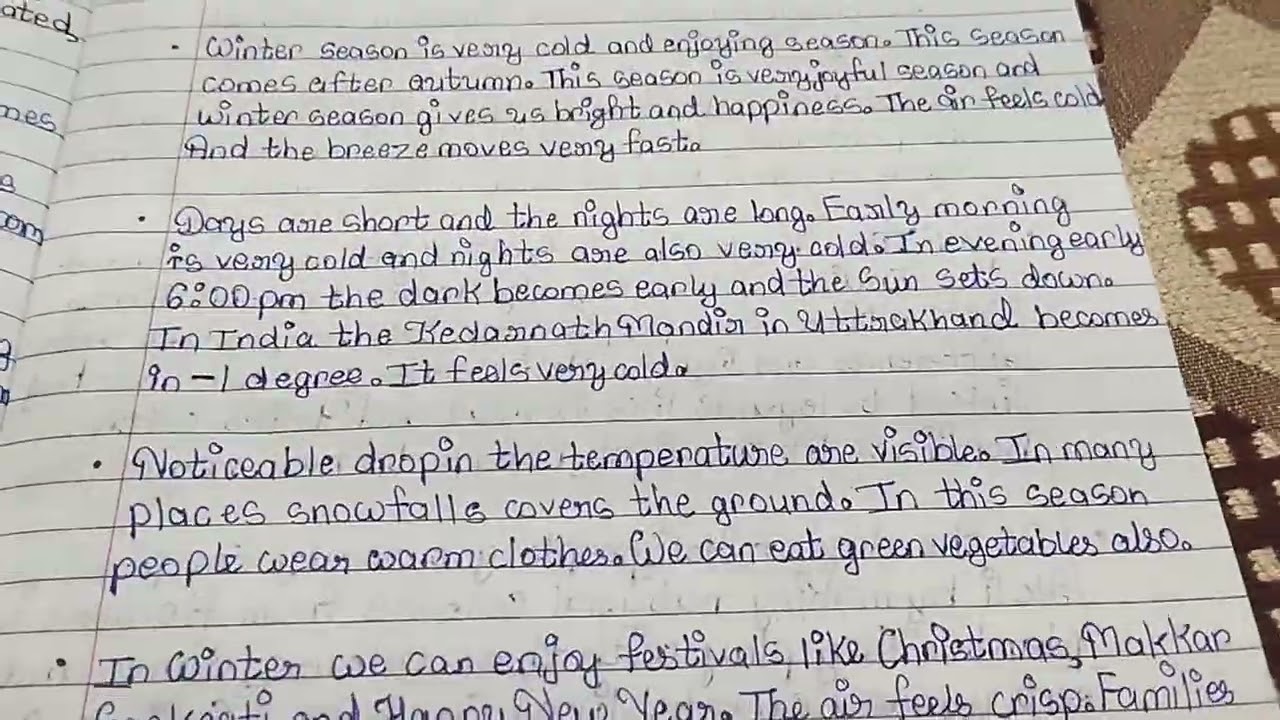 ated
• Winter season is very cold and enjoying season. This season
comes after autumn. This season is very joyful season and
mes
winter season gives us bright and happiness. The air feels cold
And the breeze moves very fast.
• Days are short and the nights are long. Early morning
om
is very cold and nights are also very cold. In evening early
6:00 pm the dark becomes early and the Sun sets down.
In India the Kedarnath Mandir in Uttrakhand becomes
in -1 degree. It feels very cold.
• Noticeable drop in the temperature are visible. In many
places snowfalls covers the ground. In this season
people wear warm clothes. We can eat green vegetables also.
• In winter we can enjoy festivals like Christmas, Makkar
and Happy New Year. The air feels crisp. Families